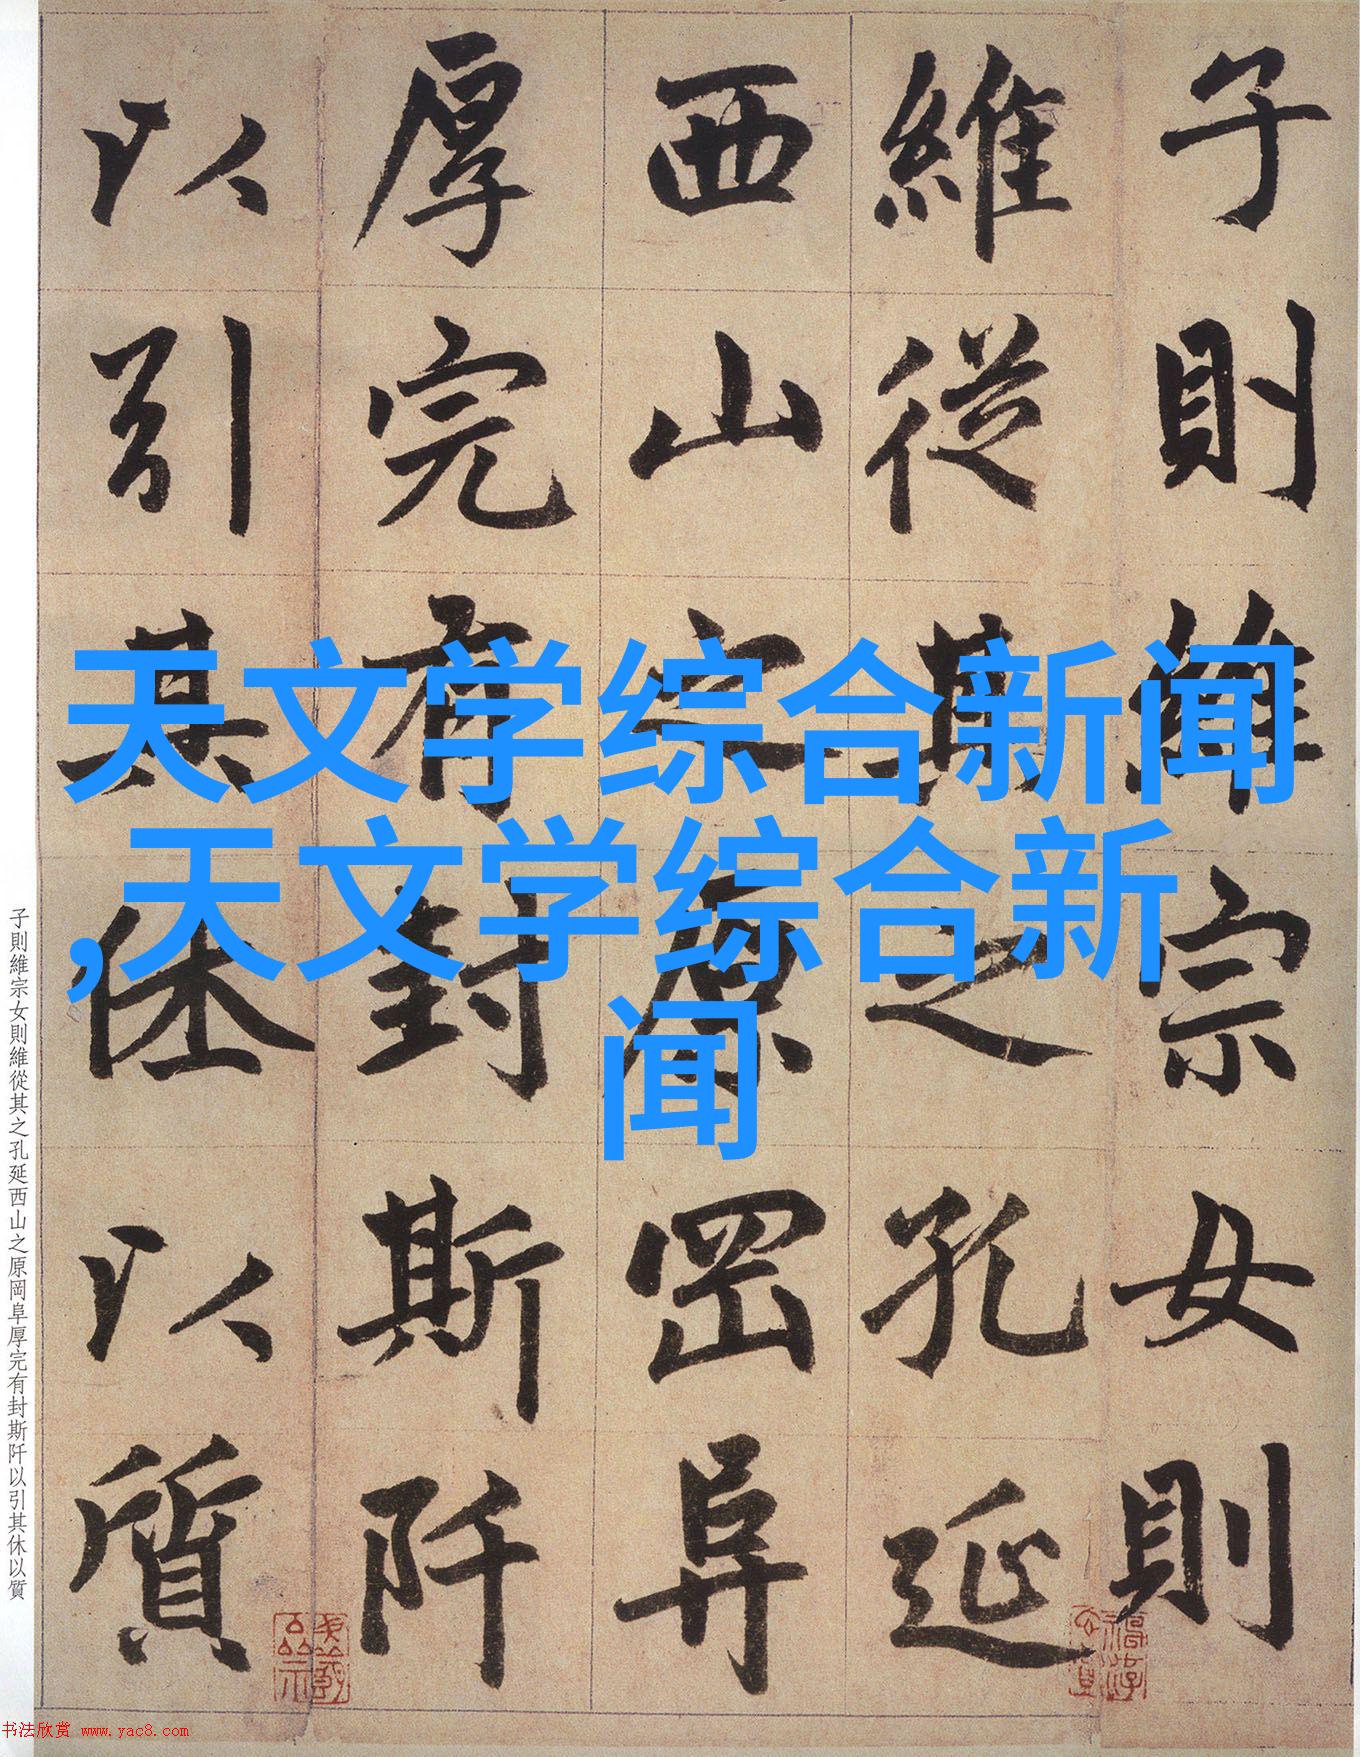 子則維宗女則
維從其之孔延
西山之原岡阜
厚完有封斯阡
以引其休以質
天文学综合新闻
,天文学综合新
闻
子則維宗女則維從其之孔延西山之原岡阜厚完有封斯阡以引其休以質
书法欣赏 www.yac8.com